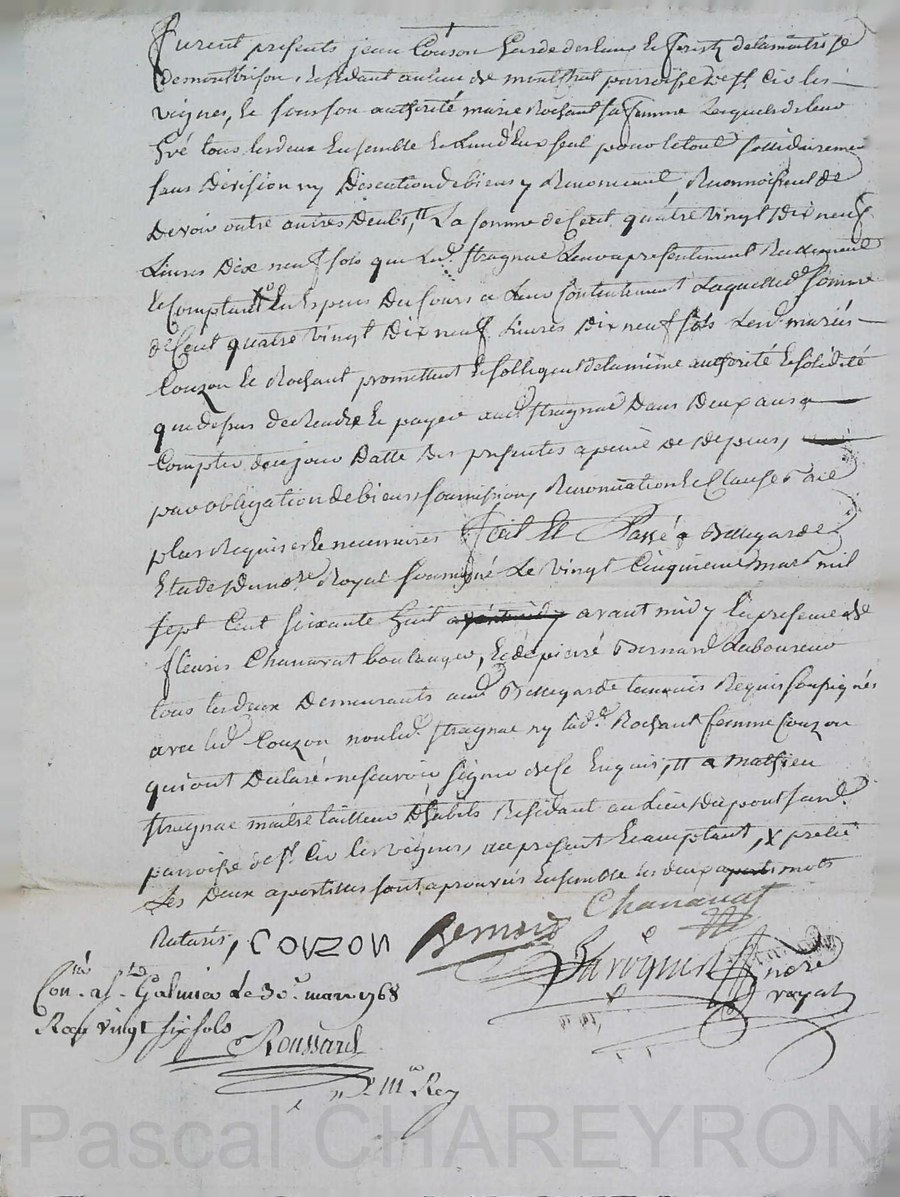 furent presents jean Couzon Garde des Eaux et forests de la maitrise
de montbrison, Residant au lieu de parroisse de st. Cir les
vignes, et sous son authorité marie Rochant sa femme Lesquels de leur
Gré tous les deux Ensemble et l'un d'Eux seul pour le tout sollidairement
sans Division ny Discution de biens y Renonceant, Reconnoissent de
Devoir outre autres Deubs, tt La somme de Cent quatre vingt Dix neuf
Livres Dix neuf sols que led. Stragnac Leur a presentement Reellement
et Comptant X En Especes Du Cours a Leur Contentement Laquelle d. somme
de Cent quatre vingt Dix neuf Livres Dix neuf sols Lesd. mariés
Couzon et Rochant promettent et sobligent de la même authorité et solidité
que dessus de rendre et payer aud. Stragnac Dans Deux ans a
Compter du jour Datte Des presentes a peine de Depens,
par obligation de biens soumissions, Renonciation et Clauses
plus Requises et necessaires fait et Passé a Bellegarde
Etude Du nore. Royal soussigné Le vingt Cinquieme mars mil
sept Cent soixante huit avant midy En presence de
fleuris Chanavat boulanger, et de pierre Bernard Laboureur
tous les deux Demeurants aud. Bellegarde temoins Requis soussignés
avec led. Couzon non led. Stragnac ny lad. Rochant femme Couzon
qui ont Declaré ne scavoir signer de ce Enquis, tt a mathieu
Stragnac maitre tailleur D'habits Residant au Lieu Du pont
parroisse de st. Cir les vignes, ice present et acceptant, X pretté
Les Deux apostilles sont aprouvées Ensemble les deux mots
Raturés, COUZON Bernard Chanavat
nore
royal
Con. a st. Galmier Le 30e. mars 1768
Reçu vingt six sols
Roussard
Pascal CHAREYRON